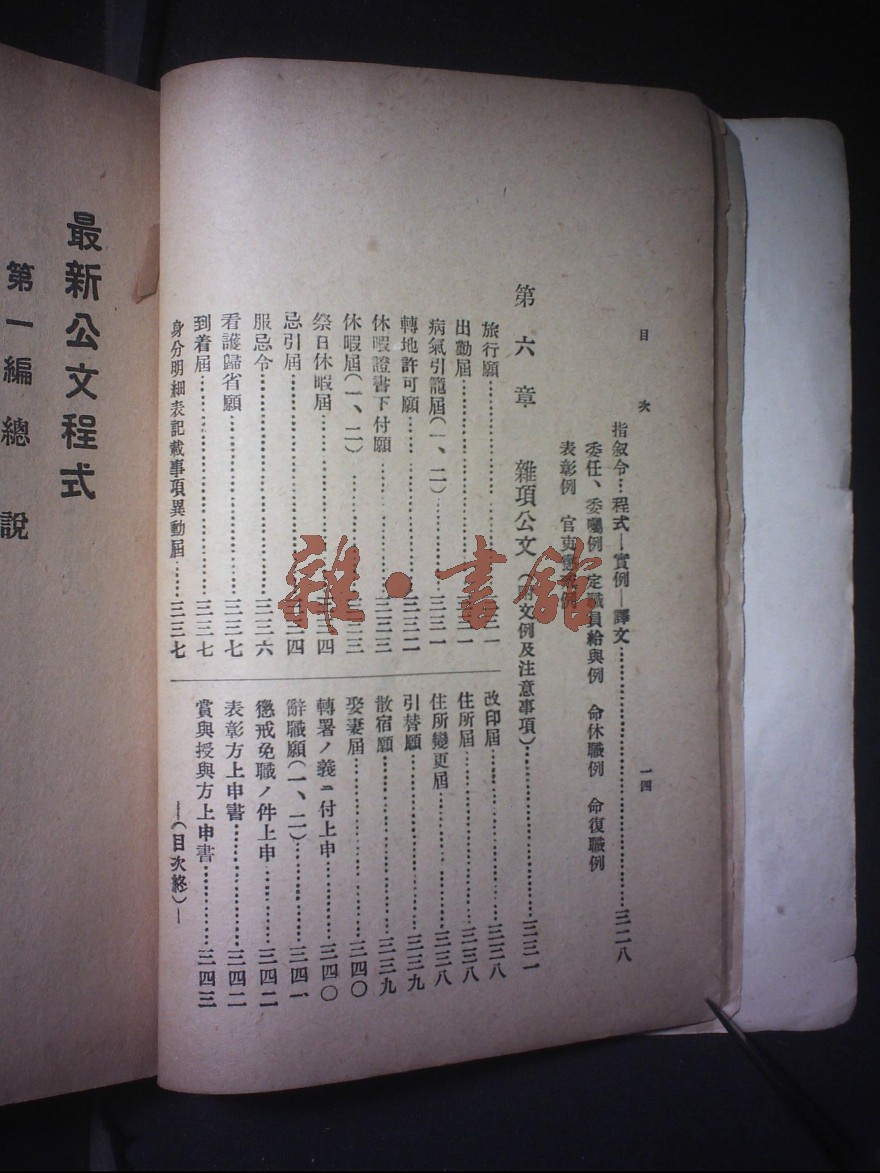 目次
一四
指叙令…程式—實例—譯文……三二八
委任、委囑例 定職員給與例 命休職例 命復職例
表彰例 官吏懲戒例
第六章 雜項公文(附文例及注意事項)……三三一
旅行願……三三一
出勤屆……三三一
病氣引籠屆(一、二)……三三一
轉地許可願……三三二
休暇證書下付願……三三三
休暇屆(一、二)……三三三
祭日休暇屆……三三四
忌引屆……三三四
服忌令……三三六
看護歸省願……三三七
到着屆……三三七
身分明細表記載事項異動屆……三三七
改印屆……三三八
住所屆……三三八
住所變更屆……三三八
引替願……三三九
散宿願……三三九
娶妻屆……三四〇
轉署ノ義ニ付上申……三四〇
辭職願(一、二)……三四一
懲戒免職ノ件上申……三四二
表彰方上申書……三四二
賞與授與方上申書……三四三
—(目次終)—
最新公文程式
第一編 總說
雜·書舘